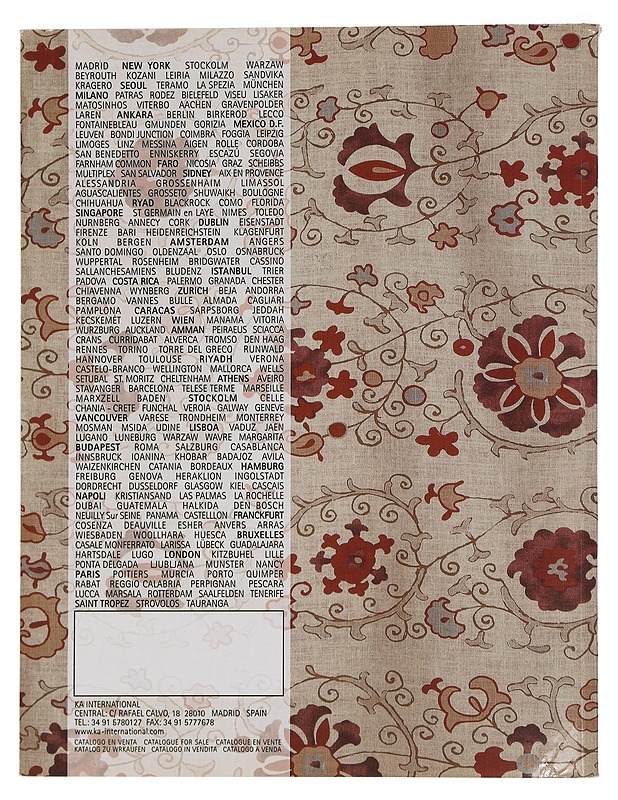 MADRID NEW YORK STOCKOLM WARZAW
BEYROUTH KOZANI LEIRIA MILAZZO SANDVIKA
KRAGERO SEOUL TERAMO LA SPEZIA MÜNCHEN
MILANO PATRAS RODEZ BIELEFELD VISEU LISAKER
MATOSINHOS VITERBO AACHEN GRAVENPOLDER
LAREN ANKARA BERLIN BIRKEROD LECCO
FONTAINEBLEAU GMUNDEN GORIZIA MEXICO D.F.
LEUVEN BONDI JUNCTION COIMBRA FOGGIA LEIPZIG
LIMOGES LINZ MESSINA AIGEN ROLLE CORDOBA
SAN BENEDETTO ENNISKERRY ESCAZÚ SEGOVIA
FARNHAM COMMON FARO NICOSIA GRAZ SCHEIBBS
MULTIPLEX SAN SALVADOR SIDNEY AIX EN PROVENCE
ALESSANDRIA GROSSENHAIM LIMASSOL
AGUASCALIENTES GROSSETO SHUWAIKH BOULOGNE
CHIHUAHUA RYAD BLACKROCK COMO FLORIDA
SINGAPORE ST GERMAIN en LAYE NIMES TOLEDO
NURNBERG ANNECY CORK DUBLIN EISENSTADT
FIRENZE BARI HEIDENREICHSTEIN KLAGENFURT
KÖLN BERGEN AMSTERDAM ANGERS
SANTO DOMINGO OLDENZAAL OSLO OSNABRÜCK
WUPPERTAL ROSENHEIM BRIDGWATER CASSINO
SALLANCHESAMIENS BLUDENZ ISTANBUL TRIER
PADOVA COSTA RICA PALERMO GRANADA CHESTER
CHIAVENNA WYNBERG ZURICH BEJA ANDORRA
BERGAMO VANNES BULLE ALMADA CAGLIARI
PAMPLONA CARACAS SARPSBORG JEDDAH
KECSKEMET LUZERN WIEN MANAMA VITORIA
WURZBURG AUCKLAND AMMAN PEIRAEUS SCIACCA
CRANS CURRIDABAT ALVERCA TROMSO DEN HAAG
RENNES TORINO TORRE DEL GRECO RUNWALD
HANNOVER TOULOUSE RIYADH VERONA
CASTELO-BRANCO WELLINGTON MALLORCA WELLS
SETUBAL ST. MORITZ CHELTENHAM ATHENS AVEIRO
STAVANGER BARCELONA TELESE TERME MARSEILLE
MARXZELL BADEN STOCKOLM CELLE
CHANIA - CRETE FUNCHAL VEROIA GALWAY GENEVE
VANCOUVER VARESE TRONDHEIM MONTERREY
MOSMAN MSIDA UDINE LISBOA VADUZ JAEN
LUGANO LUNEBURG WARZAW WAVRE MARGARITA
BUDAPEST ROMA SALZBURG CASABLANCA
INNSBRUCK IOANINA KHOBAR BADAJOZ AVILA
WAIZENKIRCHEN CATANIA BORDEAUX HAMBURG
FREIBURG GENOVA HERAKLION INGOLSTADT
DORDRECHT DUSSELDORF GLASGOW KIEL CASCAIS
NAPOLI KRISTIANSAND LAS PALMAS LA ROCHELLE
DUBAI GUATEMALA HALKIDA DEN BOSCH
NEUILLY Sur SEINE PANAMA CASTELLON FRANCKFURT
COSENZA DEAUVILLE ESHER ANVERS ARRAS
WIESBADEN WOOLLHARA HUESCA BRUXELLES
CASALE MONFERRATO LARISSA LÜBECK GUADALAJARA
HARTSDALE LUGO LONDON KITZBUHEL LILLE
PONTA DELGADA LJUBLJANA MÜNSTER NANCY
PARIS POITIERS MURCIA PORTO QUIMPER
RABAT REGGIO CALABRIA PERPIGNAN PESCARA
LUCCA MARSALA ROTTERDAM SAALFELDEN TENERIFE
SAINT TROPEZ STROVOLOS TAURANGA
KA INTERNATIONAL
CENTRAL: C/ RAFAEL CALVO, 18 28010 MADRID SPAIN
TEL.: 34 91 5780127 FAX: 34 91 5777678
www.ka-international.com
CATALOGO EN VENTA CATALOGUE FOR SALE CATALOGUE EN VENTE
KATALOG ZU WRKAUFEN CATALOGO IN VENDITA CATALOGO A VENDA